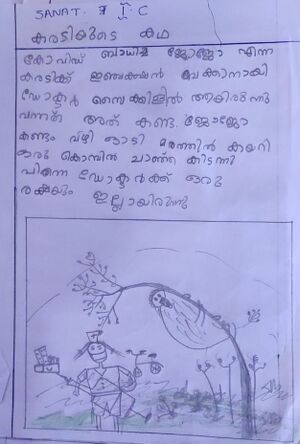 SANAT. I C
കരടിയുടെ കഥ
കോവിഡ് ബാധിച്ച ജോജോ എന്ന
കരടിക്ക് ഇഞ്ചക്ഷൻ വെക്കാനായി
ഡോക്ടർ സൈക്കിളിൽ ആയിരുന്നു
വന്നത് അത് കണ്ട ജോജോ
കണ്ടം വഴി ഓടി മരത്തിൽ കയറി
ഒരു കൊമ്പിൽ ചാഞ്ഞു കിടന്നു
പിന്നെ ഡോക്ടർക്ക് ഒരു
രക്ഷയും ഇല്ലായിരുന്നു